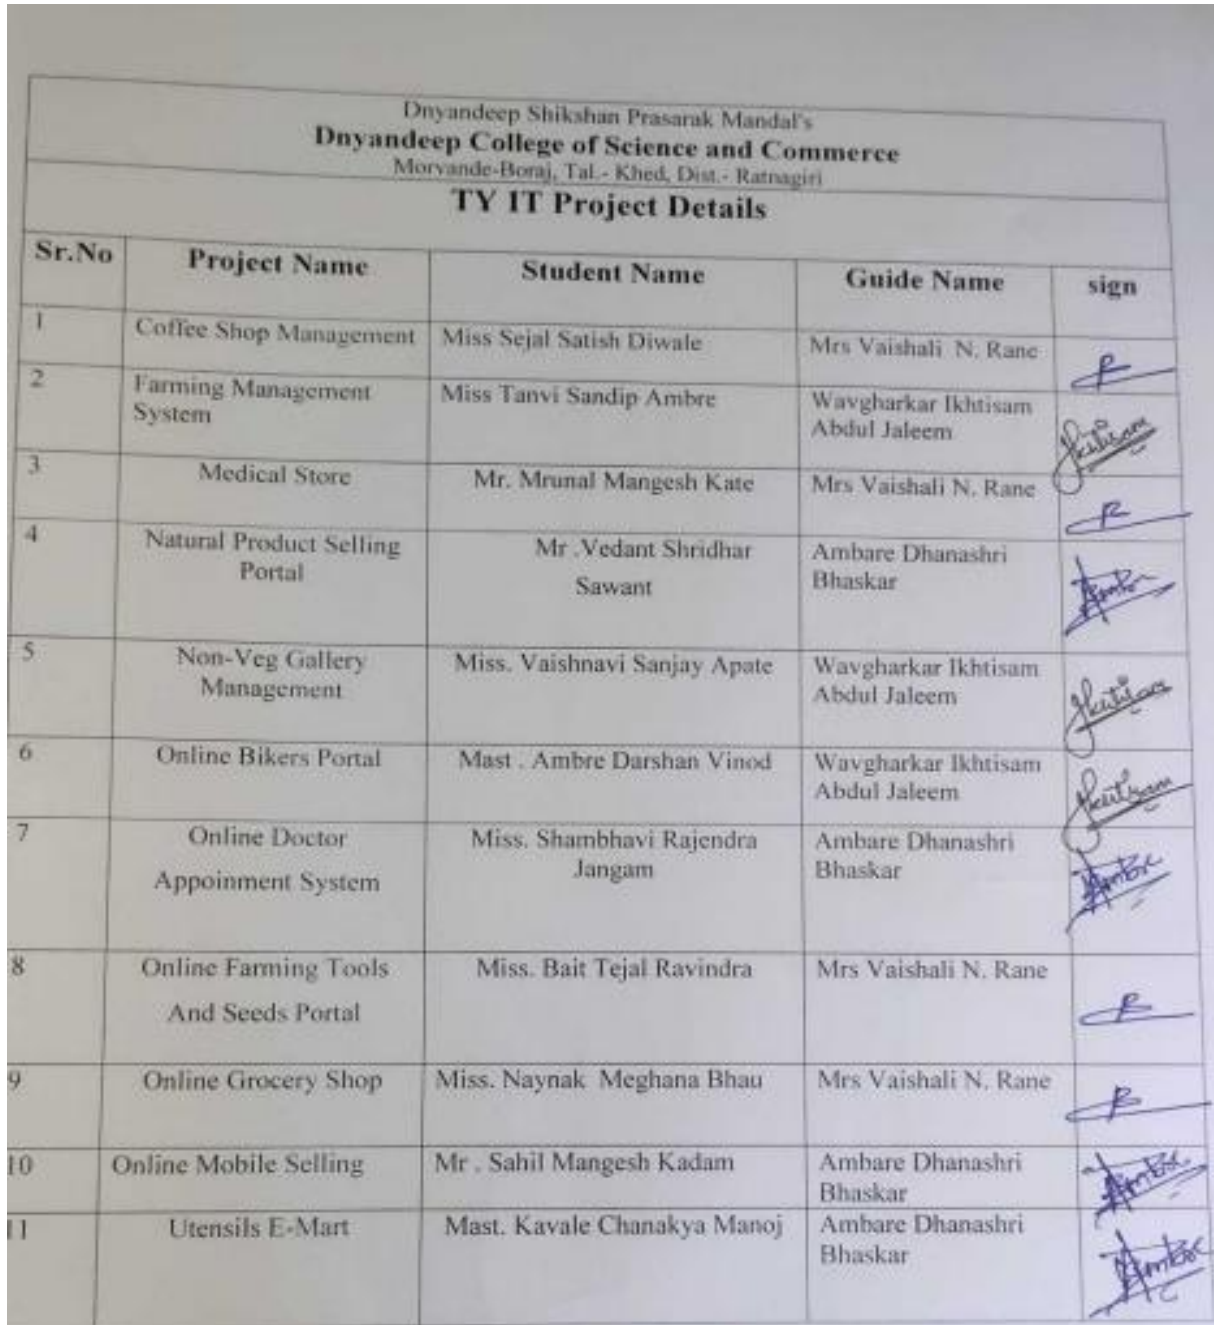 Dnyandeep Shikshan Prasarak Mandal's
Dnyandeep College of Science and Commerce
Morvande-Boraj, Tal.- Khed, Dist.- Ratnagiri
TY IT Project Details
Sr.No Project Name Student Name Guide Name sign
1 Coffee Shop Management Miss Sejal Satish Diwale Mrs Vaishali N. Rane
2 Farming Management Miss Tanvi Sandip Ambre Wavgharkar Ikhtisam
System Abdul Jaleem Ikhtisam
3 Medical Store Mr. Mrunal Mangesh Kate Mrs Vaishali N. Rane
4 Natural Product Selling Mr .Vedant Shridhar Ambare Dhanashri
Portal Sawant Bhaskar
5 Non-Veg Gallery Miss. Vaishnavi Sanjay Apate Wavgharkar Ikhtisam
Management Abdul Jaleem Ikhtisam
6 Online Bikers Portal Mast . Ambre Darshan Vinod Wavgharkar Ikhtisam
Abdul Jaleem Ikhtisam
7 Online Doctor Miss. Shambhavi Rajendra Ambare Dhanashri
Appoinment System Jangam Bhaskar
8 Online Farming Tools Miss. Bait Tejal Ravindra Mrs Vaishali N. Rane
And Seeds Portal
9 Online Grocery Shop Miss. Naynak Meghana Bhau Mrs Vaishali N. Rane
10 Online Mobile Selling Mr . Sahil Mangesh Kadam Ambare Dhanashri
Bhaskar
11 Utensils E-Mart Mast. Kavale Chanakya Manoj Ambare Dhanashri
Bhaskar